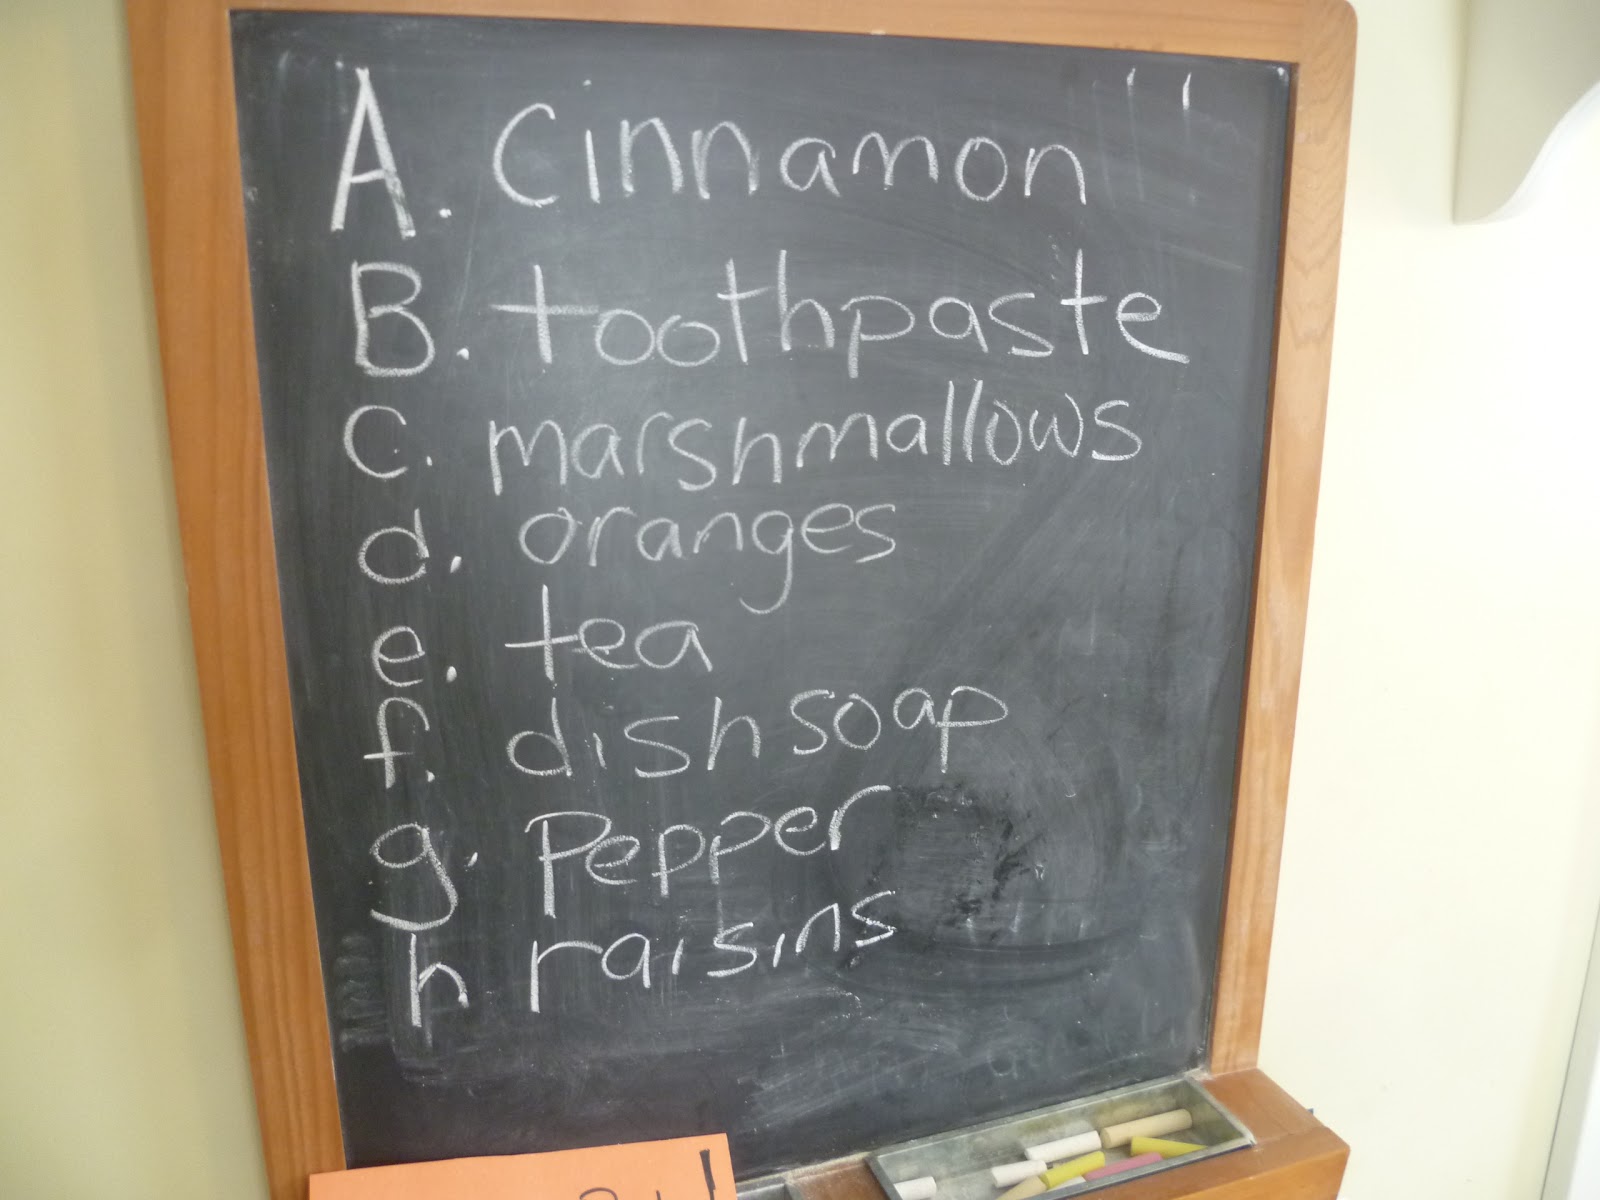 A. Cinnamon
B. toothpaste
C. marshmallows
d. oranges
e. tea
f. dish soap
g. Pepper
h raisins